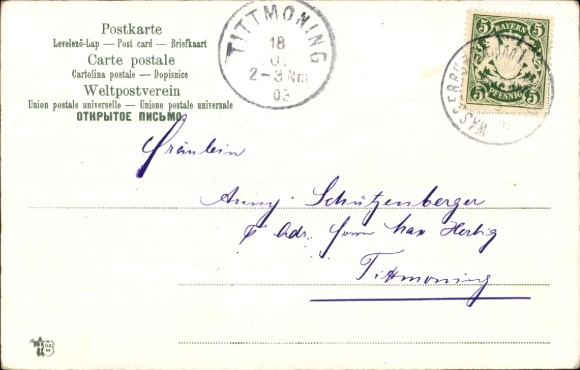 Postkarte
Levelező-Lap — Post card — Briefkaart
Carte postale
Cartolina postale — Dopisnice
Weltpostverein
Union postale universelle — Unione postale universale
ОТКРЫТОЕ ПИСЬМО
TITTMONING
18
2-3 Nm
03
5 BAYERN 5
5 PFENNIG 5
WASSERBURG
Fräulein
Anny Schützenberger
Adr. Herrn Max Herbig
Tittmoning